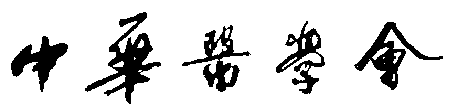 中華醫學會